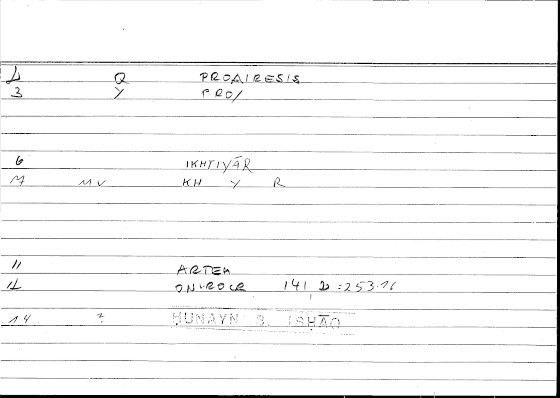 Q PROAIRESIS
3 Y PRO/
6 IKHTIYĀR
M MV KH Y R
11 ARTEM
ONIROCR 141 : 253.16
14 ? ḤUNAYN B. ISḤĀQ